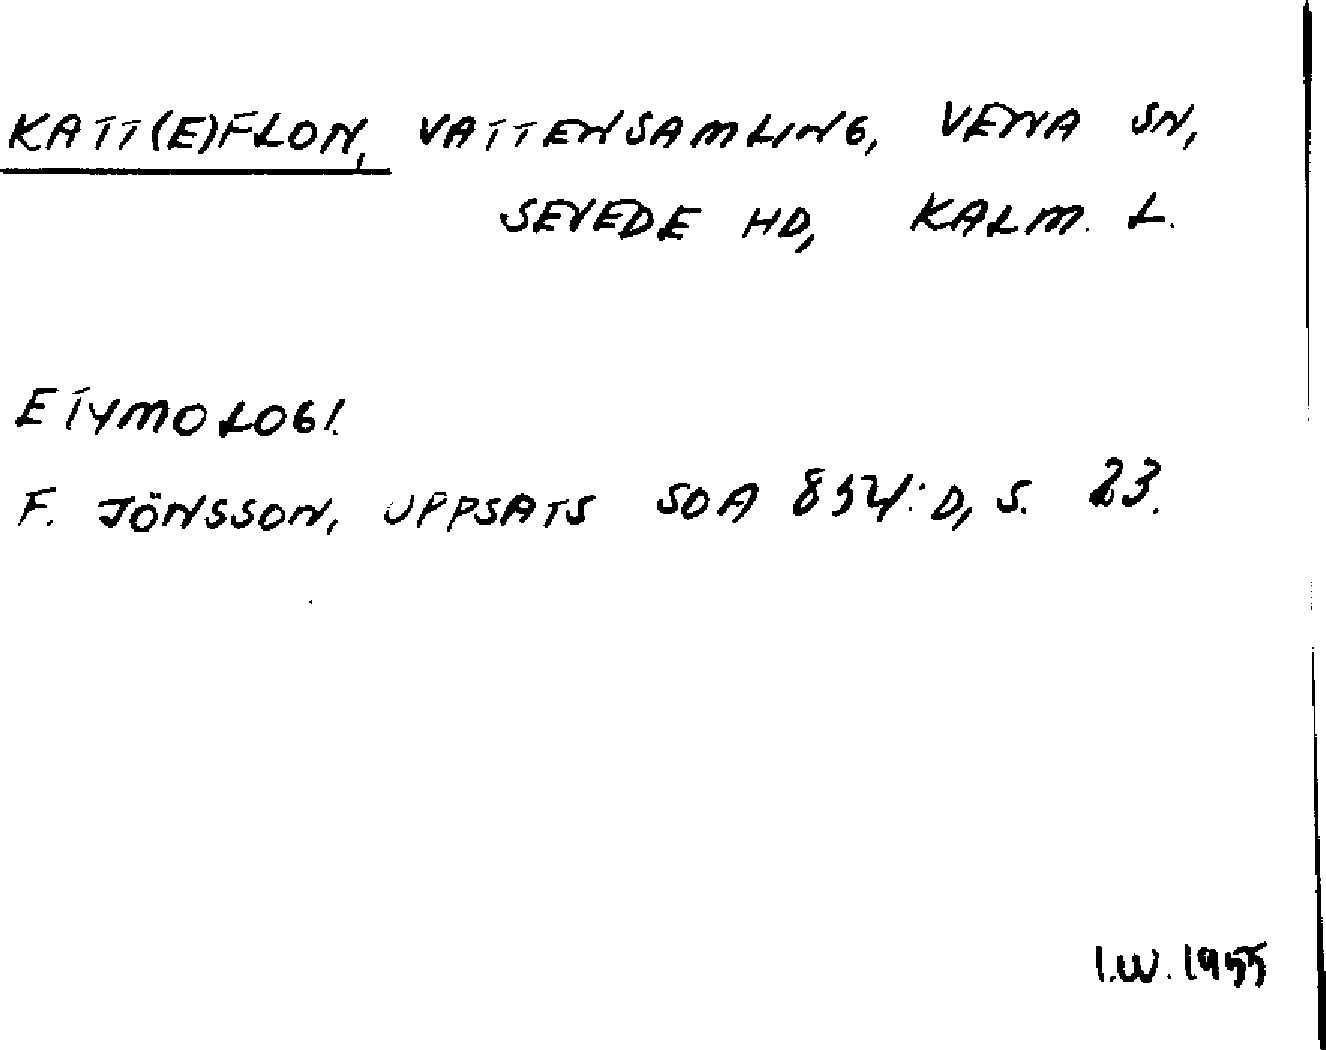 KATT(E)FLON, VATTENSAMLING, VENA SN,
SEVEDE HD, KALM. L.
ETYMOLOGI.
F. JÖNSSON, UPPSATS SOA 854:D, S. 23.
I.W. 1955